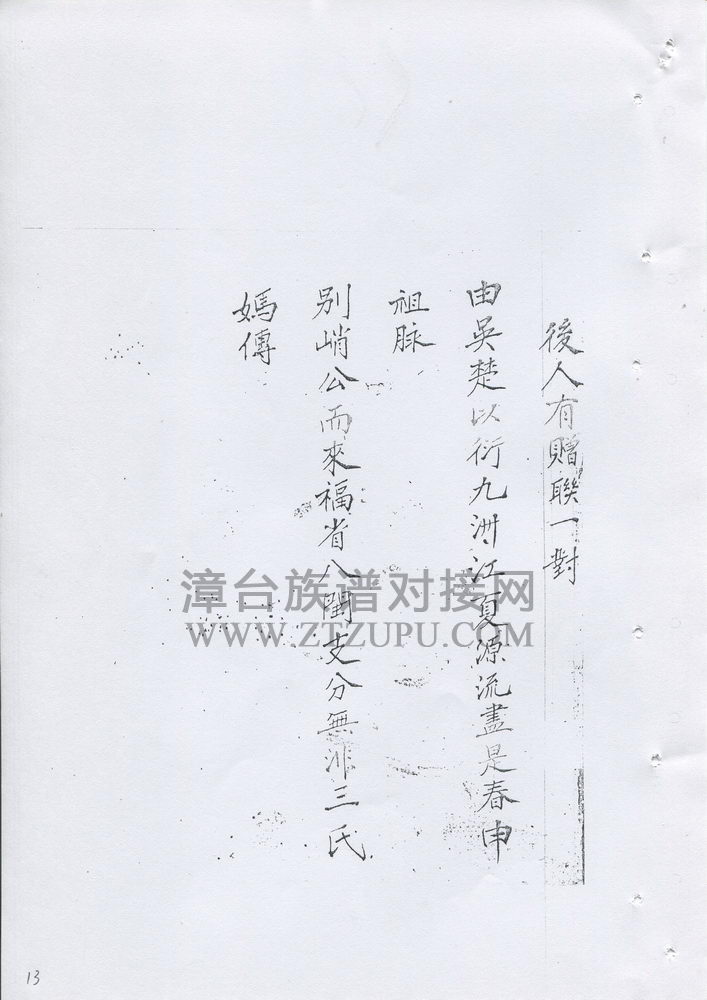 後人有贈聯一對
由吳楚以衍九洲江夏源流盡是春申
祖脉
別峭公而來福省八閩支分無非三氏
媽傳
漳台族谱对接网
WWW.ZTZUPU.COM
13